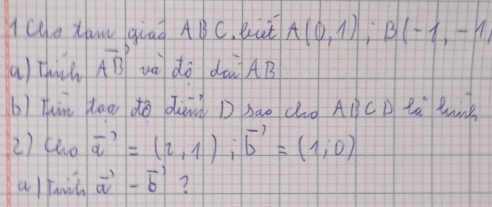 1 Cho tam giác ABC. biết A(0,1); B(-1,-1)
a) Tính \vec{AB} và độ dài AB
b) Tìm tọa độ điểm D sao cho ABCD là hình
2) Cho \vec{a} = (2,1); \vec{b} = (1;0)
a) Tính \vec{a} - \vec{b} ?